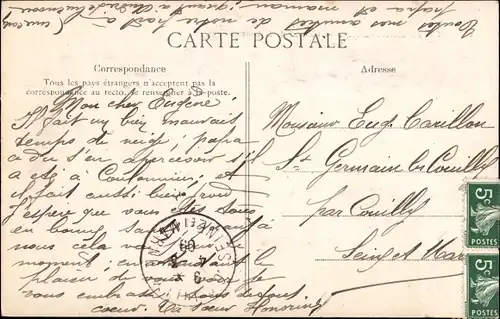 Toutes mes amitiés de notre part à
papa et maman
CARTE POSTALE
Correspondance
Tous les pays étrangers n'acceptent pas la
correspondance au recto, se renseigner à la poste.
Adresse
Mon cher Eugène
Il fait un bien mauvais
temps de neige; papa
a du s'en apercevoir s'il
a été à Coulommiers; et
il fait aussi bien froid
J'espère que vous êtes tous
en bonne santé
nous cela va bien
moment; en attendant le
plaisir de vous voir je
vous embrasse tous de tout
coeur. Ta soeur Honorine
Monsieur Eug. Carillon
St Germain les Couilly
par Couilly
Seine et Mar
5c
POSTES
5c
POSTES